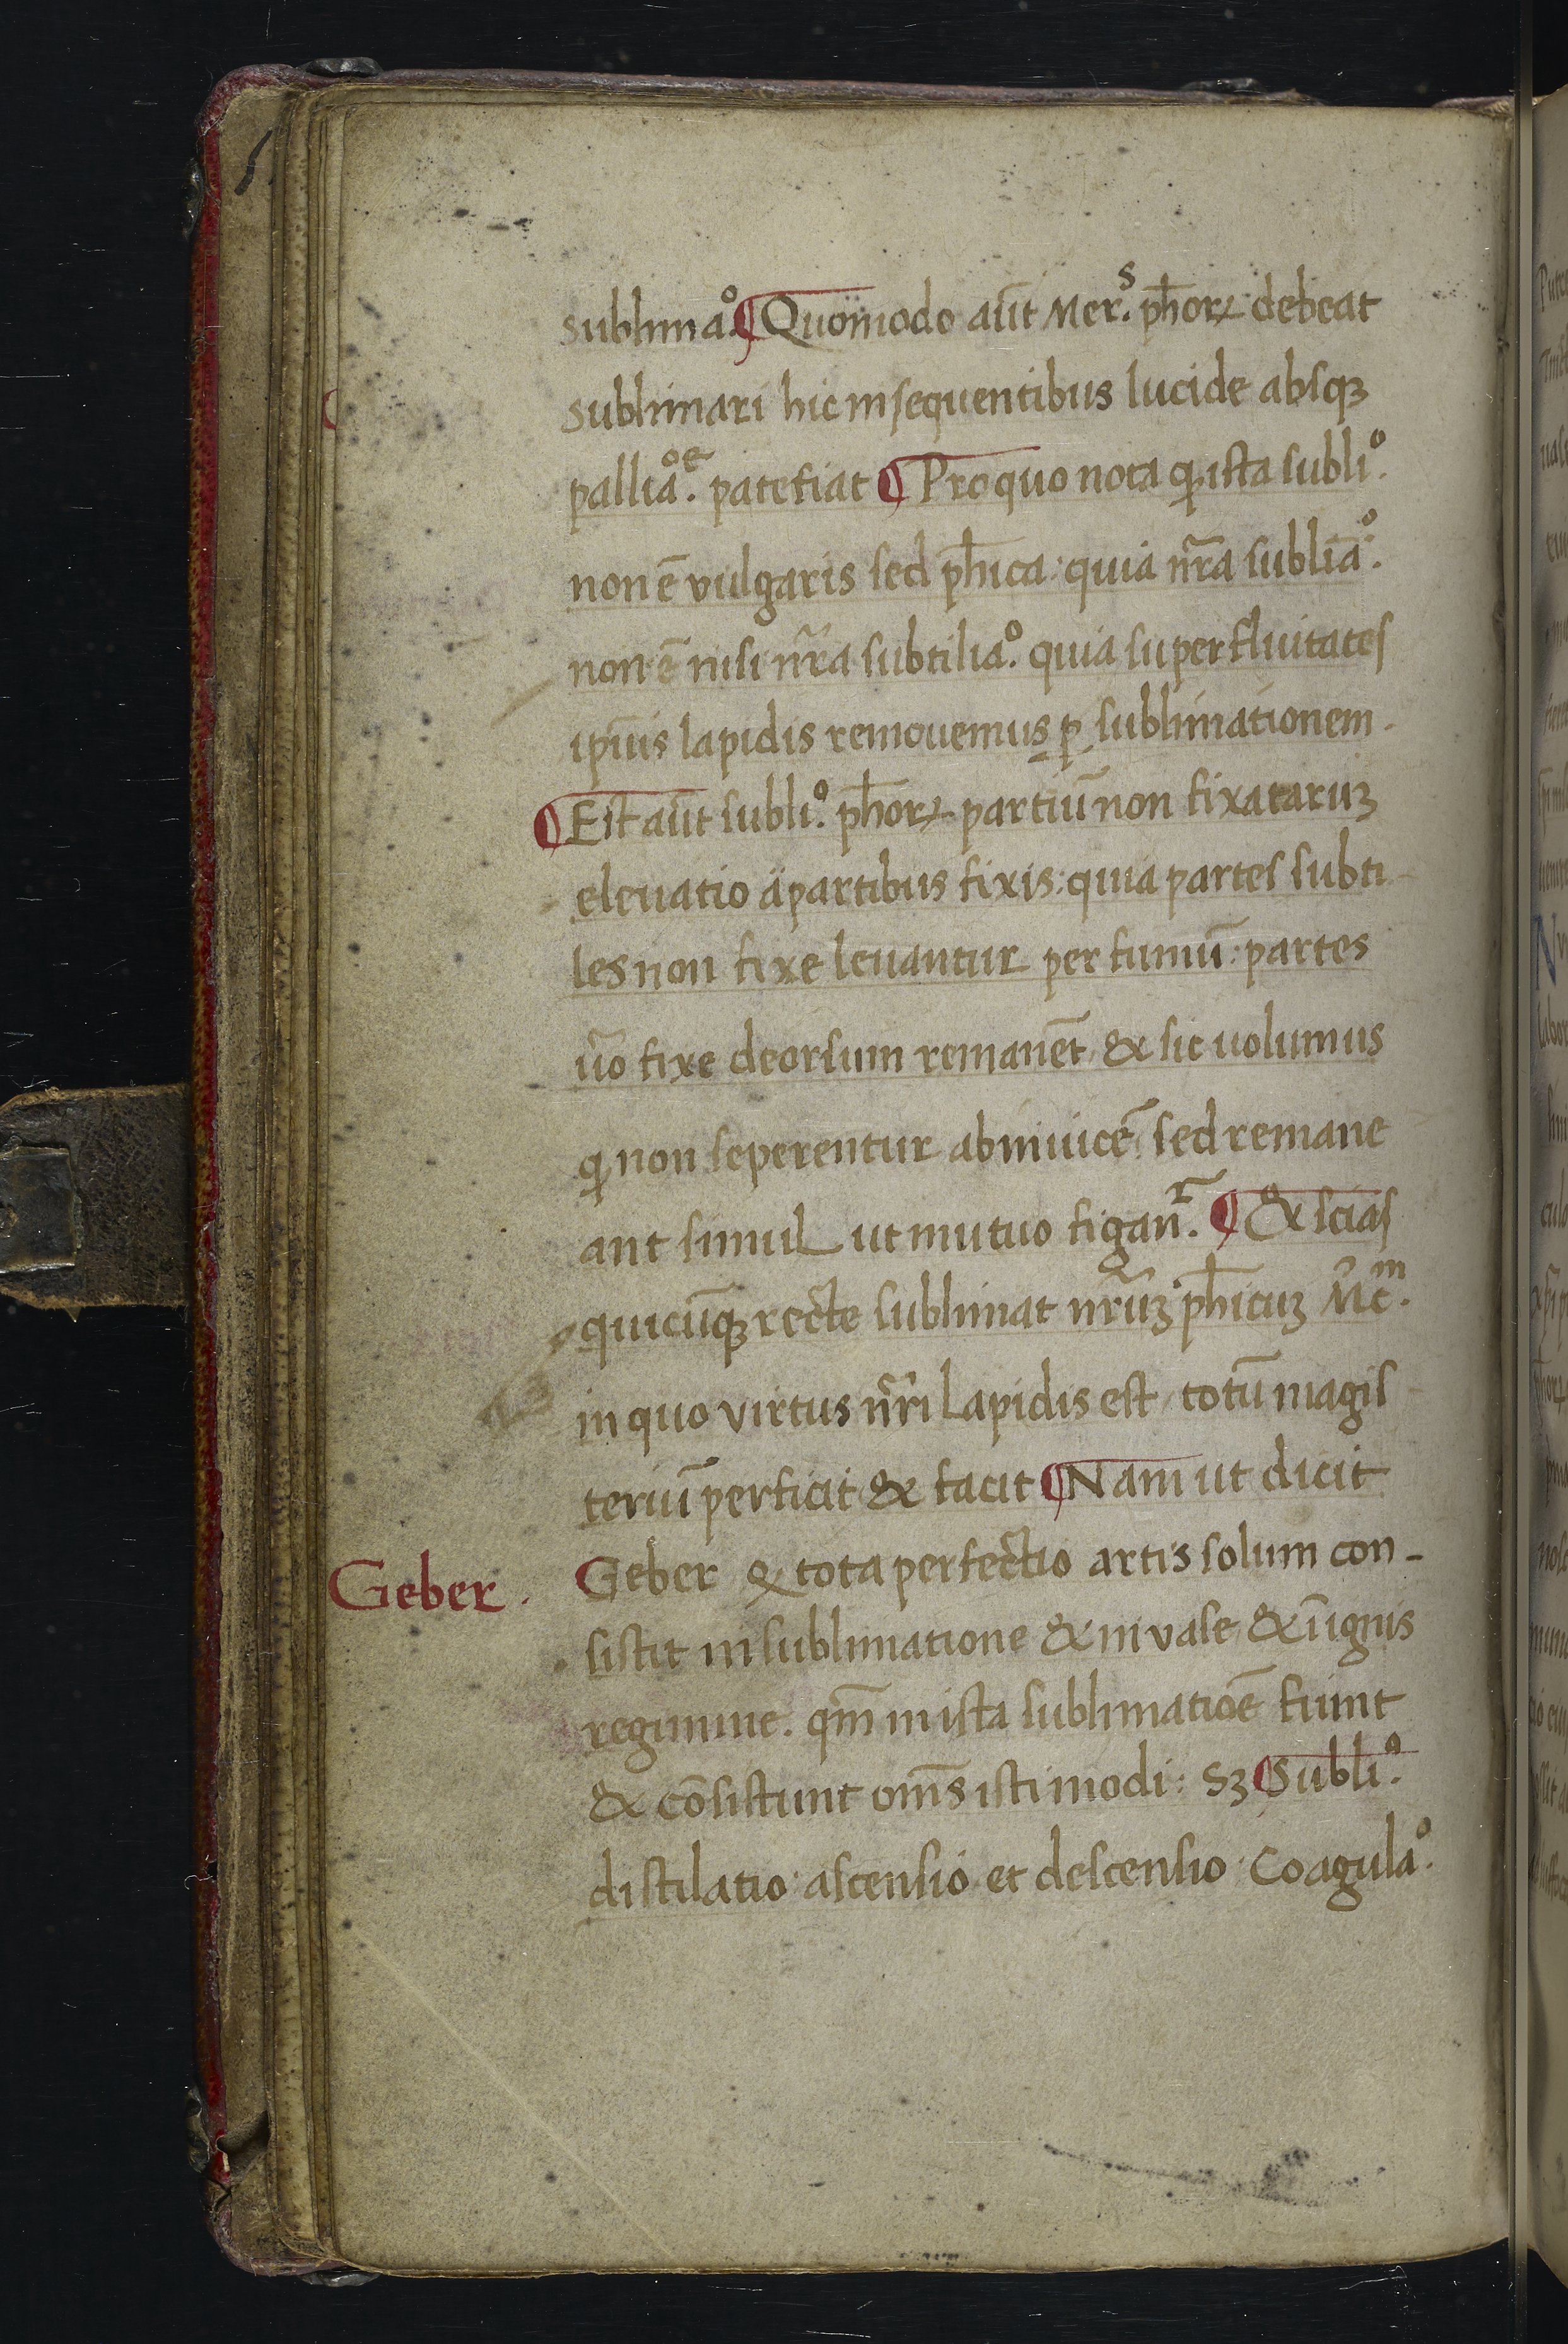 sublima.º ¶ Quomodo aūt Mer.ˢ ph̄orꝝ debeat
sublimari hic insequentibus lucide absqꝫ
pallia.ºᵉ patefiat ¶ Pro quo nota ꝙ ista subli.º
non ē vulgaris sed ph̄ica: quia nr̄a sublīa.º
non ē nisi nr̄a subtilia.º quia superfluitates
ipīus lapidis remouemus ꝑ sublimationem.
¶ Est aūt subli.º ph̄orꝝ partiū non fixataruꝫ
eleuatio a partibus fixis: quia partes subti-
les non fixe leuantur per fumū: partes
ūo fixe deorsum remanēt & sic uolumus
ꝙ non seperentur abinuicē sed remane
ant simul ut mutuo figan̄.ʳ ¶ & scias
quicūqꝫ recte sublimat nr̄uꝫ ph̄icuꝫ Mc̄.ᵐ
in quo virtus nr̄i Lapidis est, totū magis-
teriū perficit & facit ¶ Nam ut dicit
Geber
Geber ꝙ tota perfectio artis solum con-
sistit in sublimatione & in vase & ī ignis
regimine. qm̄ in ista sublimatioē fiunt
& cōsistunt om̄s isti modi: Sꝫ Subli.º
distilatio ascensio et descensio Coagula.º